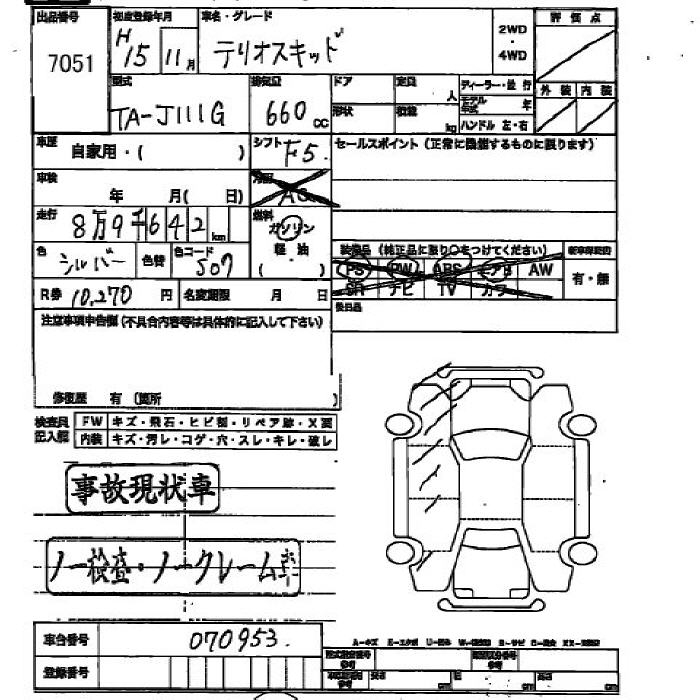 出品番号 初度登録年月 車名・グレード 評価点
7051 H15 11月 テリオスキッド 2WD・4WD
型式 排気量 ドア 定員 人 ディーラー・並行 外装 内装
TA-J111G 660cc 形状 積載 kg モデル年式 年
ハンドル 左・右
車歴 自家用・( ) シフト F5 セールスポイント(正常に機能するものに限ります)
車検 年 月( 日) 冷房 AC
走行 8万9千642km 燃料 ガソリン・軽油( )
装備品(純正品に限り○をつけてください)
色 シルバー 色替 色コード S07
PS PW ABS エアB AW 有・無
SR ナビ TV カワ
R券 10,270円 名変期限 月 日 後日品
注意事項申告欄(不具合内容等は具体的に記入して下さい)
修復歴 有(箇所 )
検査員記入欄 FW キズ・飛石・ヒビ割・リペア跡・X要
内装 キズ・汚レ・コゲ・穴・スレ・キレ・破レ
事故現状車
ノー検査・ノークレーム
車台番号 070953.
登録番号